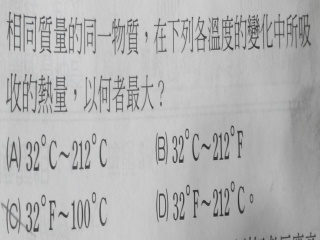 相同質量的同一物質，在下列各溫度的變化中所吸
收的熱量，以何者最大？
(A) 32°C～212°C (B) 32°C～212°F
(C) 32°F～100°C (D) 32°F～212°C。